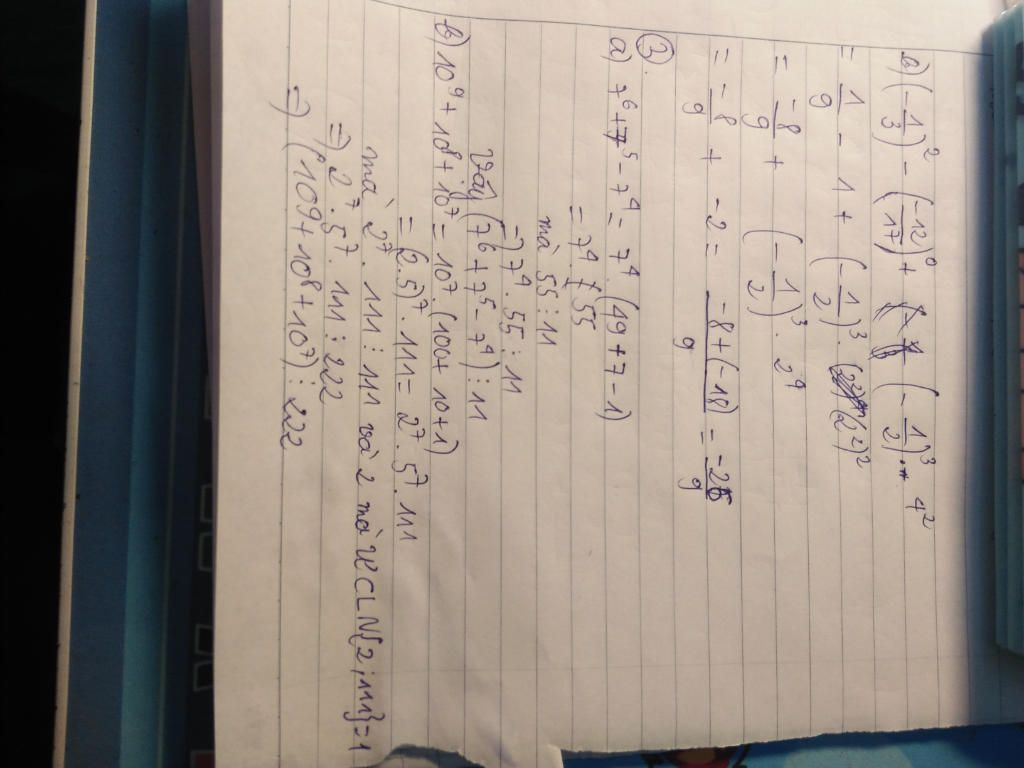 b) (-1/3)² - (-12/17)⁰ + (-1/2)³ . 4²
= 1/9 - 1 + (-1/2)³ . (2²)²
= -8/9 + (-1/2)³ . 2⁴
= -8/9 + -2 = -8+(-18)/9 = -26/9
③
a) 7⁶ + 7⁵ - 7⁴ = 7⁴ . (49 + 7 - 1)
= 7⁴ . 55
mà 55 ⋮ 11
=> 7⁴ . 55 ⋮ 11
Vậy (7⁶ + 7⁵ - 7⁴) ⋮ 11
b) 10⁹ + 10⁸ + 10⁷ = 10⁷ . (100 + 10 + 1)
= (2.5)⁷ . 111 = 2⁷ . 5⁷ . 111
mà 2⁷ . 111 ⋮ 111 và 2 mà ƯCLN{2;111}=1
=> 2⁷ . 5⁷ . 111 ⋮ 222
=> (10⁹ + 10⁸ + 10⁷) ⋮ 222